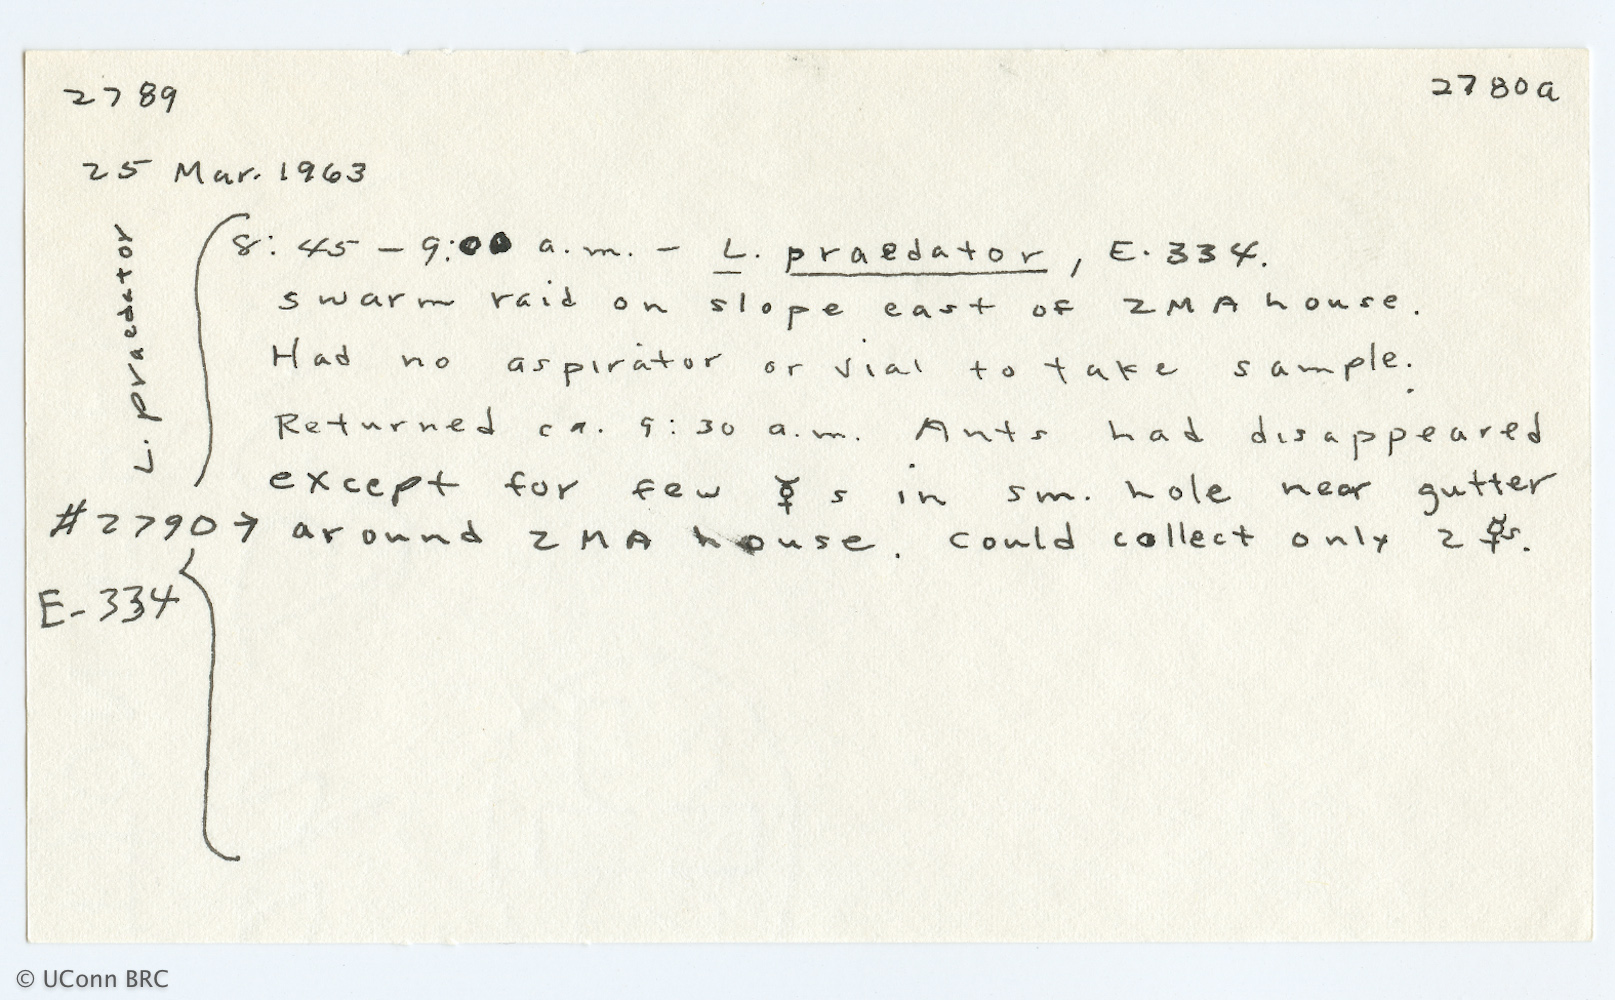 2789
2780a
25 Mar. 1963
L. praedator
8:45 - 9:00 a.m. - L. praedator, E-334.
swarm raid on slope east of ZMA house.
Had no aspirator or vial to take sample.
Returned ca. 9:30 a.m. Ants had disappeared
except for few ☿s in sm. hole near gutter
#2790→ around ZMA house. Could collect only 2 ☿s.
E-334
© UConn BRC